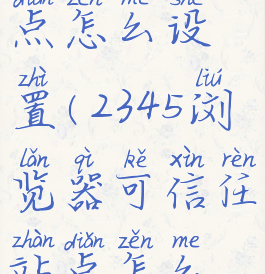 点怎么设
zhì liú
置(2345浏
lǎn qì kě xìn rèn
览器可信任
zhàn diǎn zěn me
站点怎么